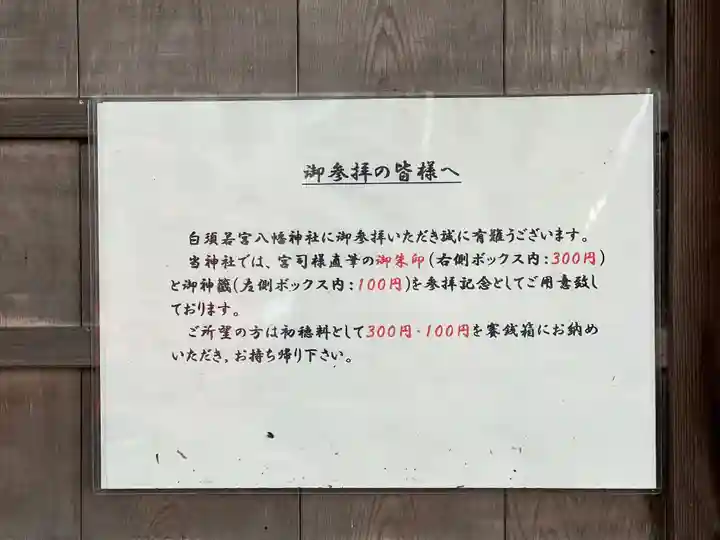 御参拝の皆様へ
白須若宮八幡神社に御参拝いただき誠に有難うございます。
当神社では、宮司様直筆の御朱印(右側ボックス内:300円)
と御神籤(左側ボックス内:100円)を参拝記念としてご用意致し
ております。
ご所望の方は初穂料として300円・100円を賽銭箱にお納め
いただき,お持ち帰り下さい。